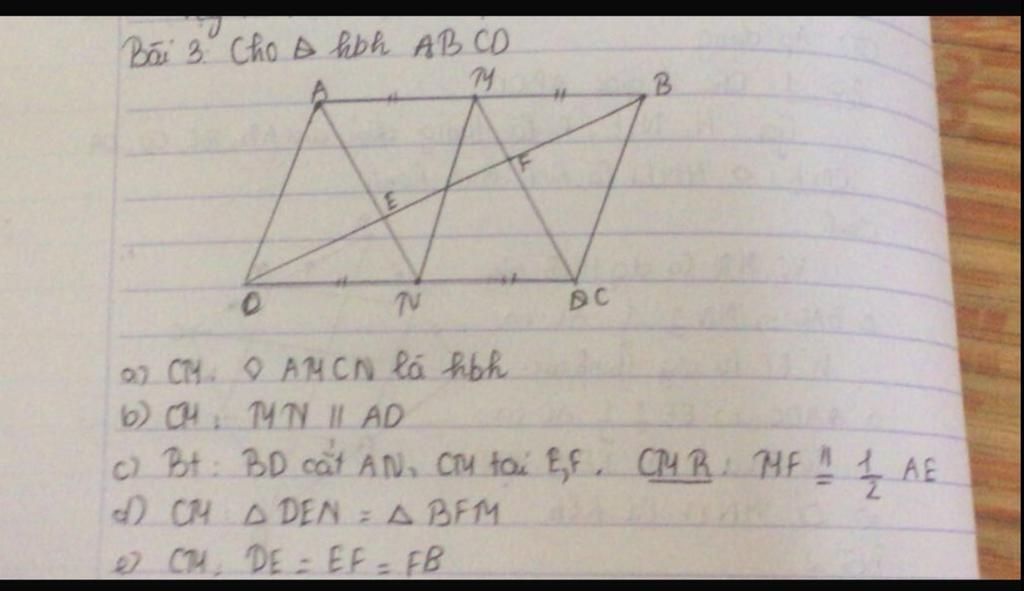 Bài 3. Cho hbh ABCD
A M B
E F
D N C
a) CM: ◊ AMCN là hbh
b) CM: MN // AD
c) Bt: BD cắt AN, CM tại E, F. CMR: MF // = 1/2 AE
d) CM △ DEN = △ BFM
e) CM: DE = EF = FB